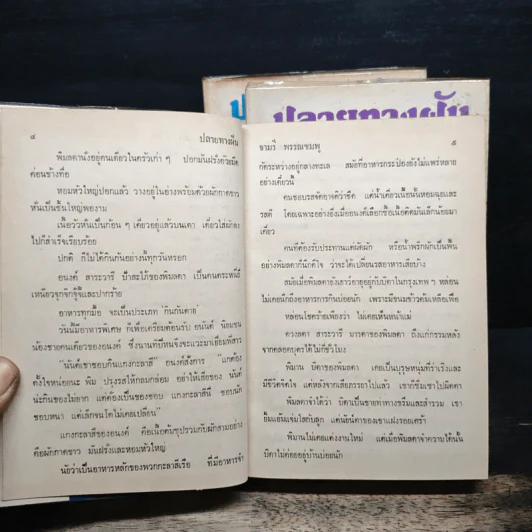 ปลายทางฝัน
๔ ปลายทางฝัน
พิมลดานั่งอยู่คนเดียวในครัวเก่า ๆ ปอกมันฝรั่งอวบเม็ด
ค่อนข้างทื่อ
หอมหัวใหญ่ปอกแล้ว วางอยู่ในอ่างพร้อมด้วยผักกาดขาว
หั่นเป็นชิ้นใหญ่พองาม
เนื้อวัวหั่นเป็นก้อน ๆ เคี่ยวอยู่แล้วบนเตา เดี๋ยวใส่ผักลง
ไปก็สำเร็จเรียบร้อย
ปกติ ก็ไม่ได้กินกันอย่างนี้ทุกวันหรอก
อนงค์ สาระวารี ป้าสะใภ้ของพิมลดา เป็นคนตระหนี่ถี่
เหนียวจุกจิกจู้จี้และปากร้าย
อาหารทุกมื้อ จะเป็นประเภท กินกันตาย
วันนี้มีอาหารพิเศษ ก็เพื่อเตรียมต้อนรับ อนันต์ น้อมชน
น้องชายคนเดียวของอนงค์ ซึ่งนานทีปีหนจึงจะแวะมาเยี่ยมพี่สาว
“นันต์เขาชอบกินแกงกะลาสี” อนงค์สั่งการ “แกต้อง
ตั้งใจหน่อยนะ พิม ปรุงรสให้กลมกล่อม อย่าให้เสียของ นันต์
นะกินของไม่ยาก แค่ต้องเป็นของชอบ แกงกะลาสีนี่ ชอบนัก
ชอบหนา แต่เล็กจนโตไม่เคยเปลี่ยน”
แกงกะลาสีของอนงค์ คือเนื้อต้มซุปรวมกับผักสามอย่าง
คือผักกาดขาว มันฝรั่งและหอมหัวใหญ่
นัยว่าเป็นอาหารหลักของพวกกะลาสีเรือ ที่มีอาหารจำ
จามรี พรรณชมพู ๕
กัดระหว่างอยู่กลางทะเล สมัยที่อาหารกระป๋องยังไม่แพร่หลาย
อย่างเดี๋ยวนี้
คนชอบรสจัดอาจติว่าชืด แต่น้ำเคี่ยวเนื้อนั้นหอมฉุยและ
รสดี โดยเฉพาะอย่างยิ่งเมื่ออนงค์เลือกซื้อเนื้อติดมันเล็กน้อยมา
เคี่ยว
คนที่ต้องรับประทานแต่ผัดผัก หรือน้ำพริกผักเป็นพื้น
อย่างพิมลดาก็นึกดีใจ ว่าจะได้เปลี่ยนรสอาหารเสียบ้าง
สมัยเมื่อพิมลดายังเยาว์อายุอยู่กับบิดาในกรุงเทพ ๆ หล่อน
ไม่เคยนึกถึงอาหารการกินบ่อยนัก เพราะมีขนมข้าวต้มเหลือเฟือ
หล่อนโชคร้ายเพียงว่า ไม่เคยเห็นหน้าแม่
ดวงลดา สาระวารี มารดาของพิมลดา ถึงแก่กรรมหลัง
จากคลอดบุตรได้ไม่กี่ชั่วโมง
พิมาน บิดาของพิมลดา เคยเป็นบุรุษหนุ่มที่ร่าเริงและ
มีชีวิตจิตใจ แต่หลังจากเสียภรรยาไปแล้ว เขาก็ซึมเซาไปผิดตา
พิมลดาจำได้ว่า บิดาเป็นชายท่าทางขรึมและสำรวม เขา
ยิ้มแย้มแจ่มใสกับลูก แต่นัยน์ตาของเขาแฝงรอยเศร้า
พิมานไม่เคยแต่งงานใหม่ แต่เมื่อพิมลดาจำความได้นั้น
บิดาไม่ค่อยอยู่บ้านบ่อยนัก